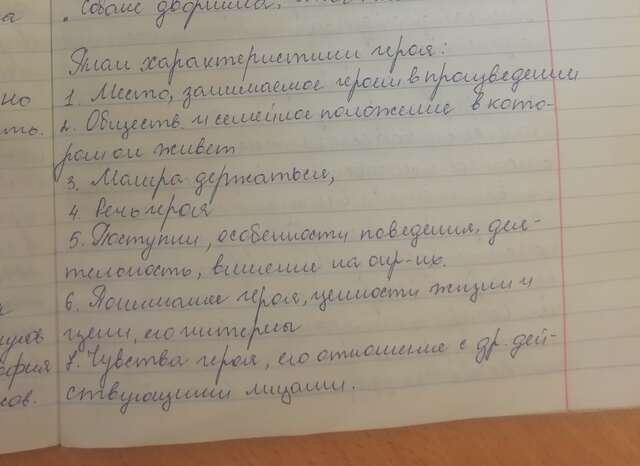 а
Собаке дворника,
План характеристики героя:
но
1. Место, занимаемое героем в произведении
ть.
2. Обществ. и семейное положение в кото-
ром он живет
3. Манера держаться,
4. Речь героя
5. Поступки, особенности поведения, дея-
тельность, влияние на окр-их.
6. Понимание героя, ценности жизни и
цели, его интересы
7. Чувства героя, его отношение с др. дей-
ствующими лицами.